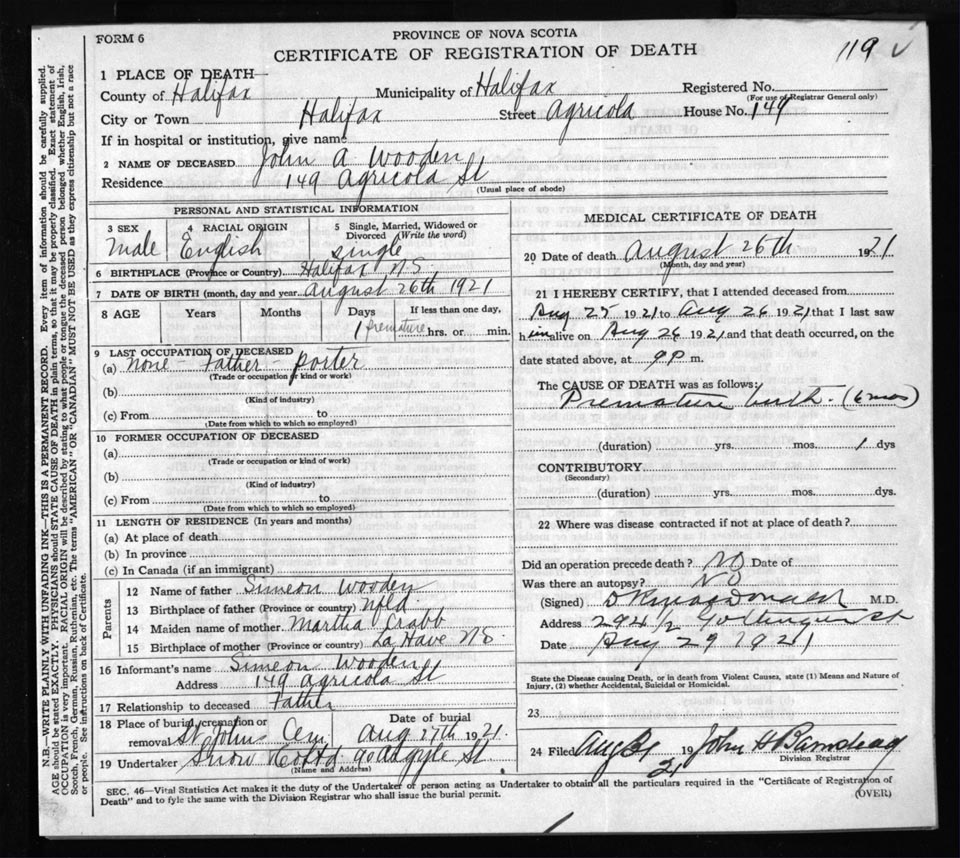 FORM 6
PROVINCE OF NOVA SCOTIA
CERTIFICATE OF REGISTRATION OF DEATH
119 ✓
1 PLACE OF DEATH—
County of Halifax Municipality of Halifax Registered No.
(For use of Registrar General only)
City or Town Halifax Street Agricola House No. 149
If in hospital or institution, give name
2 NAME OF DECEASED John A Wooden
Residence 149 Agricola St
(Usual place of abode)
PERSONAL AND STATISTICAL INFORMATION
3 SEX 4 RACIAL ORIGIN 5 Single, Married, Widowed or Divorced (Write the word)
Male English Single
6 BIRTHPLACE (Province or Country) Halifax N.S.
7 DATE OF BIRTH (month, day and year August 26th 1921
8 AGE Years Months Days If less than one day,
1 Premature hrs. or min.
9 LAST OCCUPATION OF DECEASED
(a) None - Father - porter
(Trade or occupation or kind or work)
(b)
(Kind of industry)
(c) From to
(Date from which to which so employed)
10 FORMER OCCUPATION OF DECEASED
(a)
(Trade or occupation or kind of work)
(b)
(Kind of industry)
(c) From to
(Date from which to which so employed)
11 LENGTH OF RESIDENCE (In years and months)
(a) At place of death
(b) In province
(c) In Canada (if an immigrant)
Parents
12 Name of father Simeon Wooden
13 Birthplace of father (Province or country) Nfld
14 Maiden name of mother Martha Crabb
15 Birthplace of mother (Province or country) La Have N S.
16 Informant's name Simeon Wooden
Address 149 Agricola St
17 Relationship to deceased Father
18 Place of burial, cremation or removal St Johns Cem Date of burial Aug 27th 1921.
19 Undertaker Snow & Co Ltd 90 Argyle St.
(Name and Address)
MEDICAL CERTIFICATE OF DEATH
20 Date of death August 26th 1921
(Month, day and year)
21 I HEREBY CERTIFY, that I attended deceased from
Aug 25 1921 to Aug 26 1921 that I last saw
him alive on Aug 26 1921 and that death occurred, on the
date stated above, at 9 P m.
The CAUSE OF DEATH was as follows:
Premature birth. (6 mos)
(duration) yrs. mos. 1 dys
CONTRIBUTORY
(Secondary)
(duration) yrs. mos. dys.
22 Where was disease contracted if not at place of death?
Did an operation precede death? NO Date of
Was there an autopsy? NO
(Signed) MacDonald M.D.
Address 294 1/2 Gottingen St
Date Aug 29 1921
State the Disease causing Death, or in death from Violent Causes, state (1) Means and Nature of Injury, (2) whether Accidental, Suicidal or Homicidal.
23
24 Filed Aug 19 21 John H Barnstead
Division Registrar
SEC. 46—Vital Statistics Act makes it the duty of the Undertaker or person acting as Undertaker to obtain all the particulars required in the "Certificate of Registration of
Death" and to fyle the same with the Division Registrar who shall issue the burial permit.
(OVER)
N.B.—WRITE PLAINLY WITH UNFADING INK—THIS IS A PERMANENT RECORD. Every item of information should be carefully supplied.
AGE should be stated EXACTLY. PHYSICIANS should STATE CAUSE OF DEATH in plain terms, so that it may be properly classified. Exact statement of
OCCUPATION is very important. RACIAL ORIGIN will be described by stating to what people or tongue the deceased person belonged whether English, Irish,
Scotch, French, German, Russian, Ruthenian, etc. The terms "AMERICAN" OR "CANADIAN" MUST NOT BE USED as they express citizenship but not a race
or people. See instructions on back of Certificate.